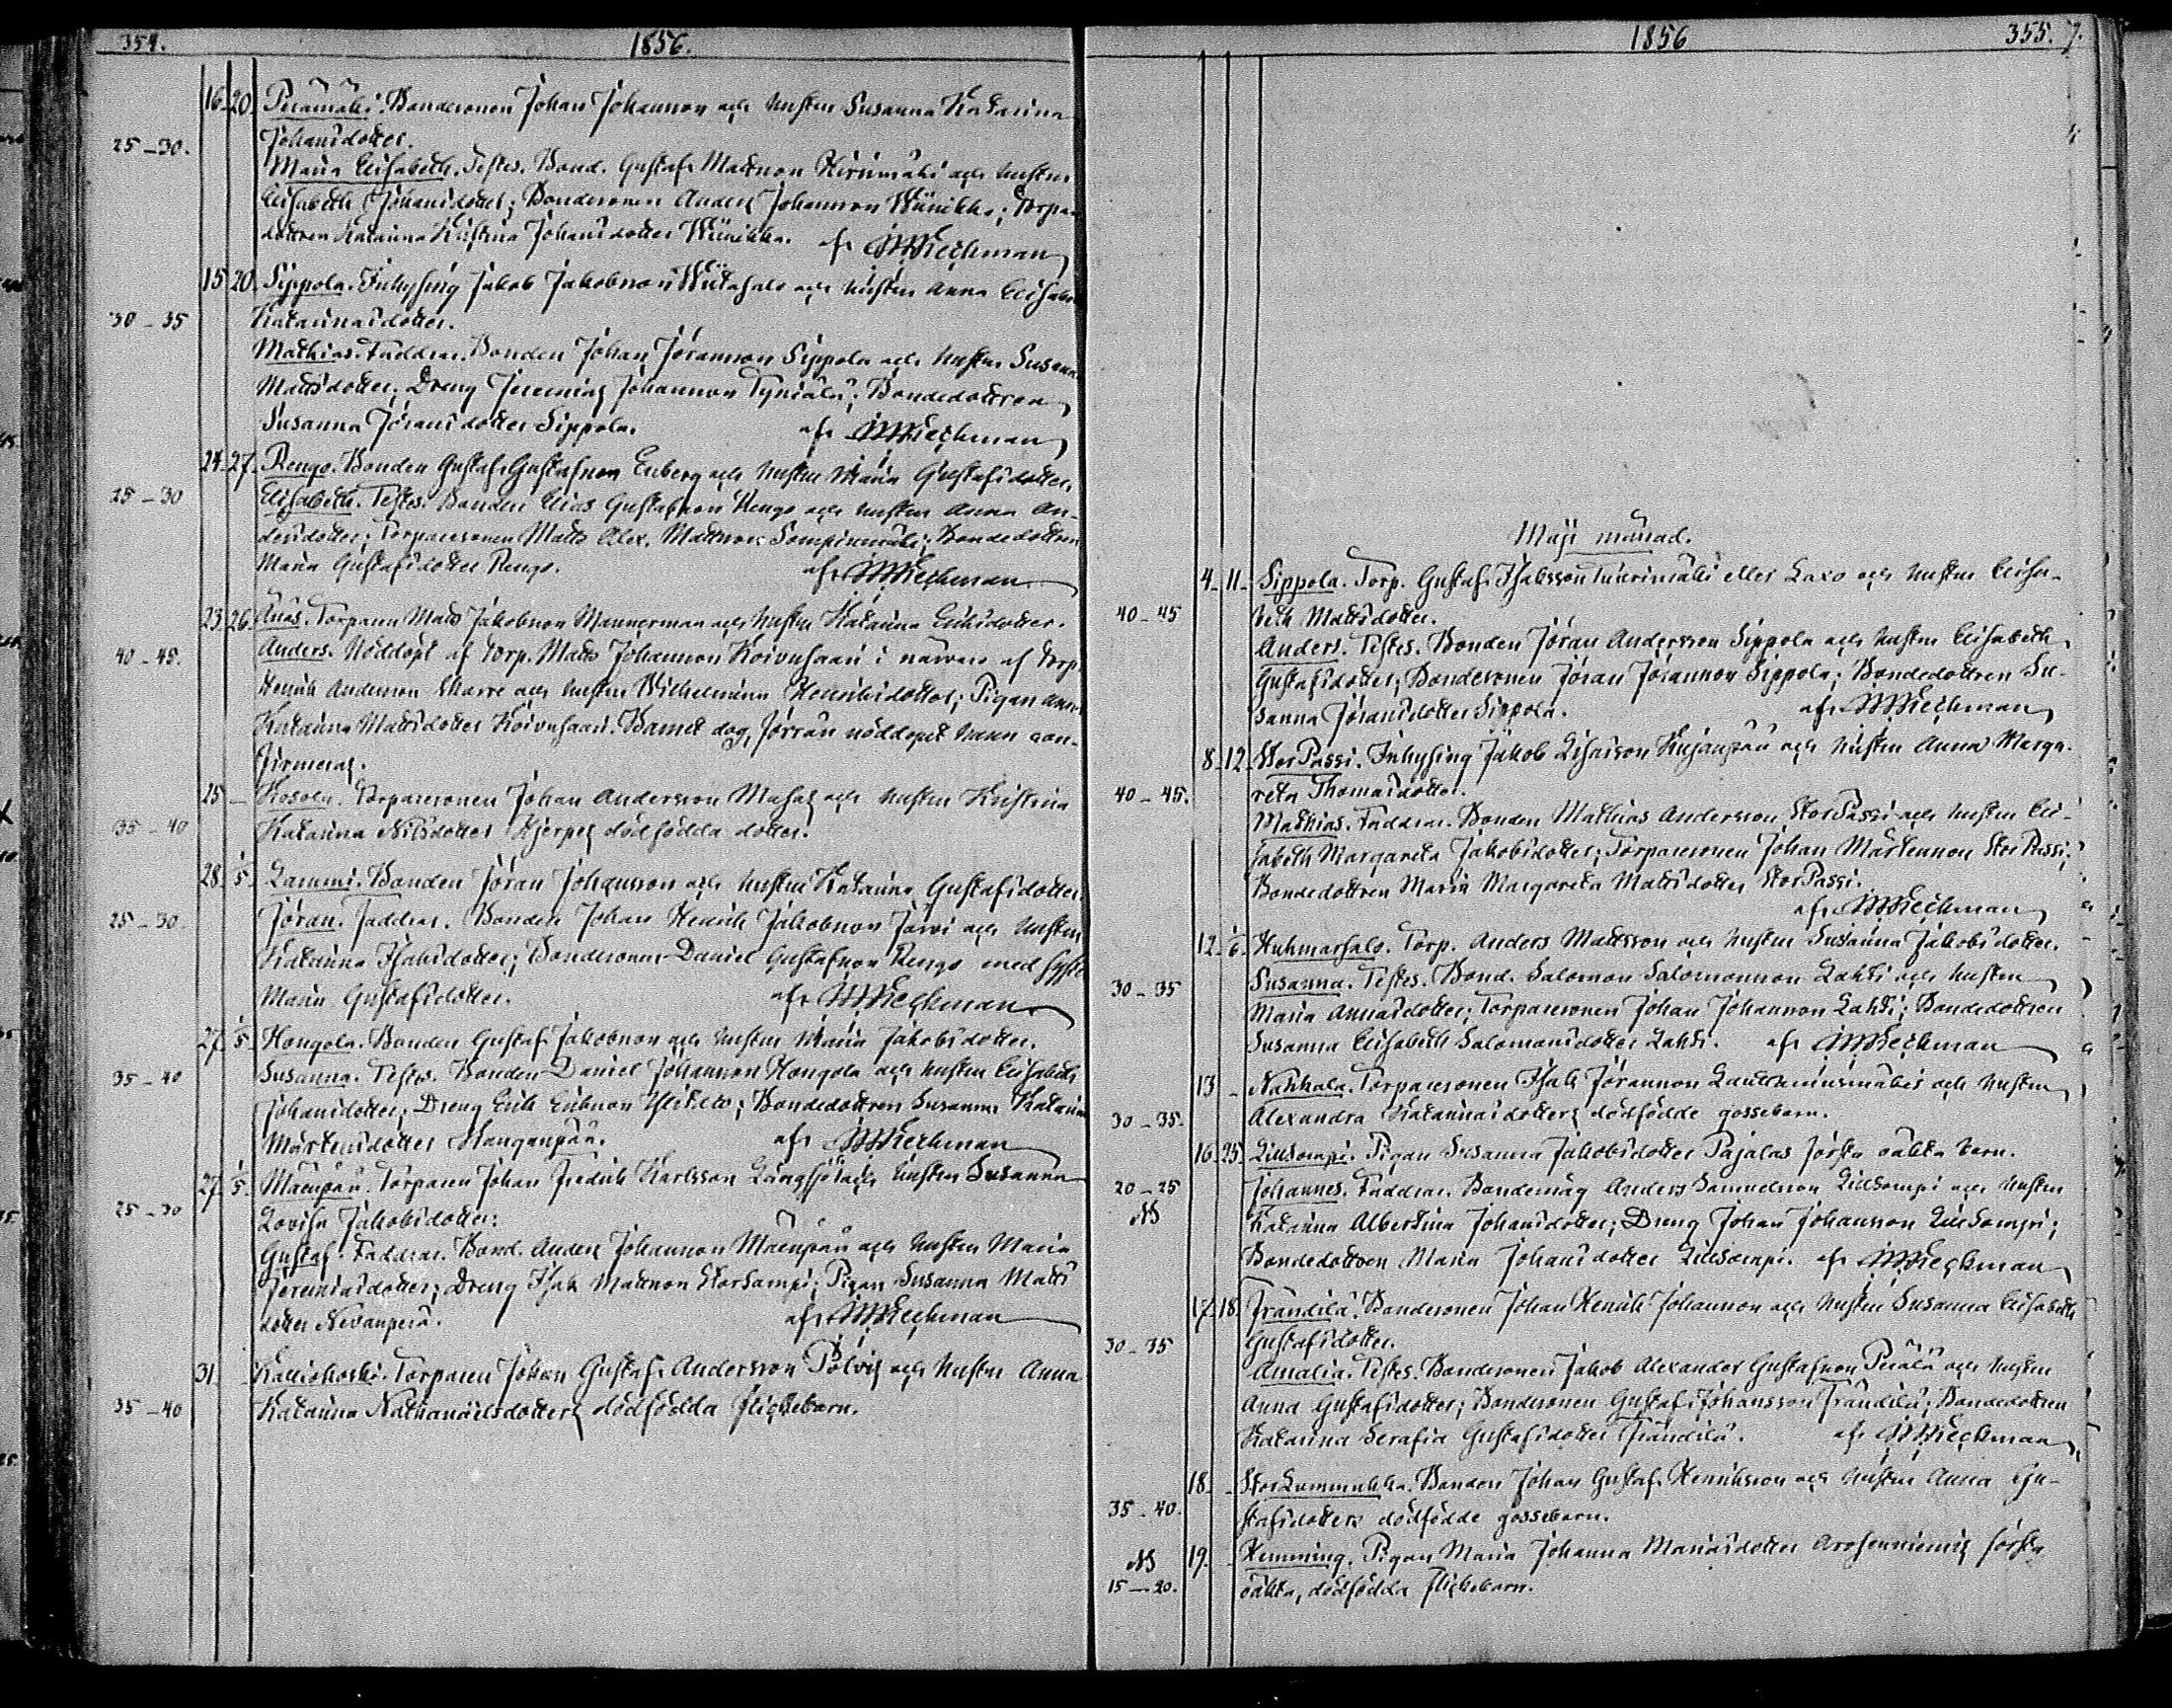 354.
1856.
16. 20. Perämäki. Bondesonen Johan Johansson och hustru Susanna Katarina
25-30. Johansdotter.
Maria Elisabeth. Testes. Bond. Gustaf Mattsson Hirvimäki och hustru
Elisabeth Johansdotter; Bondesonen Anders Johansson Wiinikka; Torpare
dottren Katarina Kristina Johansdotter Wiinikka. af
15. 20. Sippola. Inhysing Jakob Jakobsson och hustru Anna Elisabeth
30-35 Katarinasdotter.
Mathias. Faddrar. Bonden Johan Jöransson Sippola och hustru Susanna
Mattsdotter; Dreng Jeremias Johansson; Bondedottren
Susanna Jöransdotter Sippola. af
24. 27. Rengo. Bonden Gustaf Gustafsson Enberg och hustru Maria Gustafsdotter.
25-30 Elisabeth. Testes. Bonden Elias Gustafsson Rengo och hustru Anna An-
dersdotter; Torparesonen Matts Alex. Mattsson; Bondedottren
Maria Gustafsdotter Rengo. af
23. 26. Torparen Matts Jakobsson Mannerman och hustru Katarina Eriksdotter.
40-45. Anders. Nöddöpt af Torp. Matts Johansson Koivusaari i närvaro af Torp.
Henrik Andersson och hustru Wilhelmina Henriksdotter; Pigan Anna
Katarina Mattsdotter Koivusaari. Barnet dog, förrän nöddopet hann con-
firmeras.
25 - Kosola. Torparesonen Johan Andersson och hustru Kristina
35-40 Katarina Nilsdotter dödfödda dotter.
28. 1/5. Lammi. Bonden Jöran Johansson och hustru Katarina Gustafsdotter.
25-30. Jöran. Faddrar. Bonden Johan Henrik Jakobsson Järvi och hustru
Katarina Isaksdotter; Bondesonen Daniel Gustafsson Rengo med syster
Maria Gustafsdotter. af
27. 1/5. Hongola. Bonden Gustaf Jakobsson och hustru Maria Jakobsdotter.
35-40 Susanna. Testes. Bonden Daniel Johansson Hongola och hustru Elisabeth
Johansdotter; Dreng Erik Eriksson; Bondedottren Susanna Katarina
Mårtensdotter Kanganpää. af
27. 1/5. Mäenpää. Torparen Johan Fredrik Karlsson och hustru Susanna
25-30 Lovisa Jakobsdotter.
Gustaf. Faddrar. Bond. Anders Johansson Mäenpää och hustru Maria
Jeremiasdotter; Dreng Isak Mattsson StorSampi; Pigan Susanna Matts
dotter Nevanperä. af
31 Kalliokoski. Torparen Johan Gustaf Andersson och hustru Anna
35-40 Katarina Nathanaelsdotters dödfödda flickebarn.
1856
355.
Maji månad.
4. 11. Sippola. Torp. Gustaf Isaksson eller Laxo och hustru Elisa-
40-45 beth Mattsdotter.
Anders. Testes. Bonden Jöran Andersson Sippola och hustru Elisabeth
Gustafsdotter; Bondesonen Jöran Jöransson Sippola; Bondedottren Su-
sanna Jöransdotter Sippola. af
8. 12. StorPassi. Inhysing Jakob och hustru Anna Marga-
40-45. reta Thomasdotter.
Mathias. Faddrar. Bonden Mathias Andersson StorPassi och hustru Eli-
sabeth Margareta Jakobsdotter; Torparesonen Johan Mårtensson StorPassi;
Bondedottren Maria Margareta Mattsdotter StorPassi.
af
12. 1/6. Huhmarsalo. Torp. Anders Mattsson och hustru Susanna Jakobsdotter.
30-35 Susanna. Testes. Bond. Salomon Salomonsson Lahti och hustru
Maria Annasdotter; Torparesonen Johan Johansson Lahti; Bondedottren
Susanna Elisabeth Salomonsdotter Lahti. af
13 - Nahkala. Torparesonen Isak Jöransson och hustru
30-35. Alexandra Katarinasdotters dödfödde gossebarn.
16. 25. LillSampi. Pigan Susanna Jakobsdotter Pajalas första oäkta barn.
20-25 Johannes. Faddrar. Bondemåg Anders Samuelsson LillSampi och hustru
NB Katarina Albertina Johansdotter; Dreng Johan Johansson LillSampi;
Bondedottren Maria Johansdotter LillSampi. af
17. 18. Frändilä. Bondesonen Johan Henrik Johansson och hustru Susanna Elisabeth
30-35 Gustafsdotter.
Amalia. Testes. Bondesonen Jakob Alexander Gustafsson Perälä och hustru
Anna Gustafsdotter; Bondesonen Gustaf Johansson Frändilä; Bondedottren
Katarina Serafia Gustafsdotter Frändilä. af
18. - StorLummukka. Bonden Johan Gustaf Henriksson och hustru Anna Gu-
35-40. stafsdotters dödfödde gossebarn.
NB 19. - Hemming. Pigan Maria Johanna Mariasdotter första
15-20. oäkta, dödfödda flickebarn.